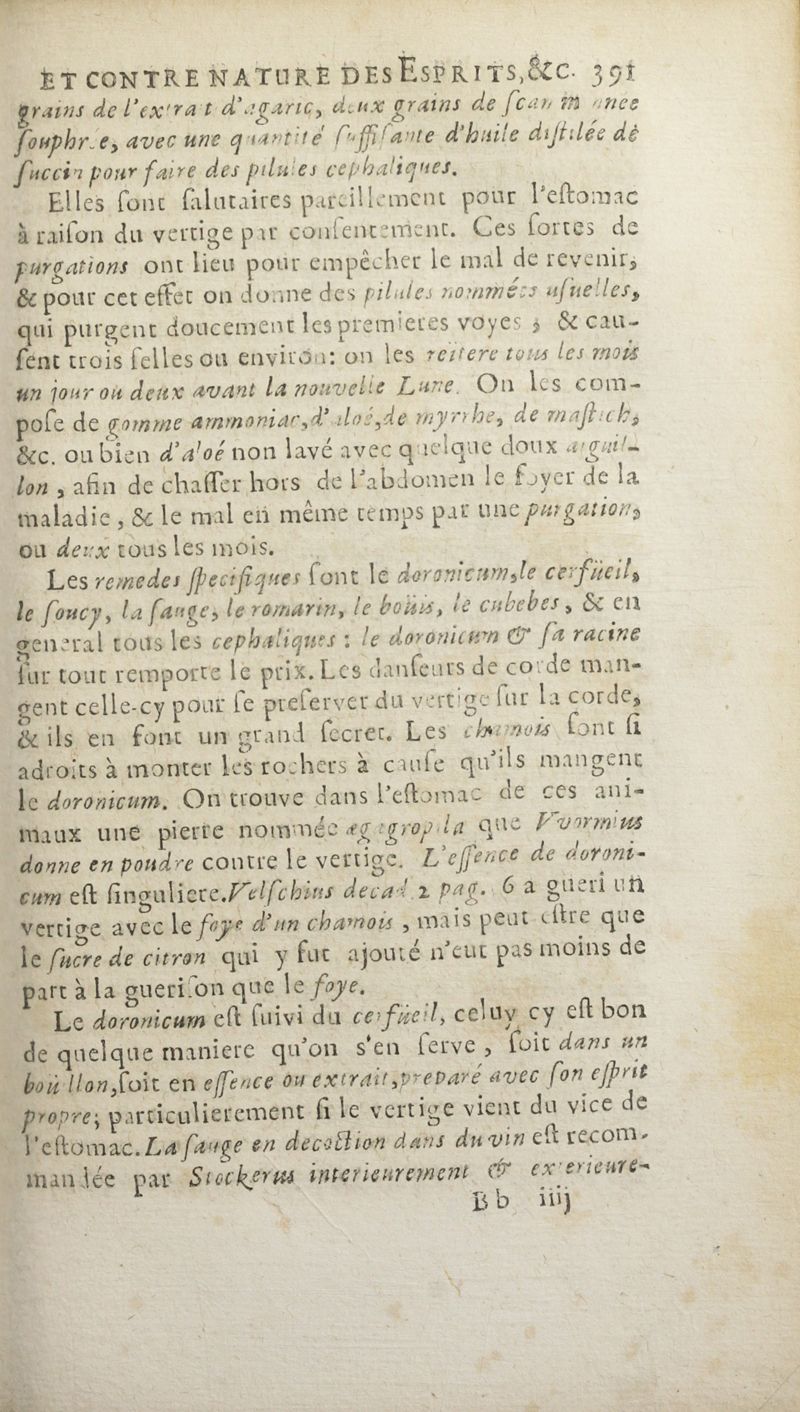 ET CONTRE NATURE DES ESPRITS, &c. 391
grains de l'extrait d'agaric, deux grains de scammonee
souphrée, avec une quantité suffisante d'huile distilée de
succin pour faire des pilules cephaliques.
Elles sont salutaires pareillement pour l'eſtomac
à raiſon du vertige par conſentement. Ces ſortes de
purgations ont lieu pour empêcher le mal de revenir,
& pour cet effet on donne des pilules nommées uſuelles,
qui purgent doucement les premieres voyes, & cau-
ſent trois ſelles ou environ: on les reïtere tous les mois
un jour ou deux avant la nouvelle Lune. On les com-
poſe de gomme ammoniac, d'aloé, de myrrhe, de maſtich,
&c. ou bien d'aloé non lavé avec quelque doux aiguil-
lon, afin de chaſſer hors de l'abdomen le foyer de la
maladie, & le mal en même temps par une purgation,
ou deux tous les mois.
Les remedes ſpecifiques ſont le doronicum, le cerfüeil,
le ſoucy, la ſauge, le romarin, le boüis, le cubebes, & en
general tous les cephaliques: le doronicum & ſa racine
ſur tout remporte le prix. Les danſeurs de corde man-
gent celle-cy pour ſe preſerver du vertige ſur la corde,
& ils en font un grand ſecret. Les chamois ſont ſi
adroits à monter les rochers à cauſe qu'ils mangent
le doronicum. On trouve dans l'eſtomac de ces ani-
maux une pierre nommée ægagropila que Vvormius
donne en poudre contre le vertige. L'eſſence de doroni-
cum eſt ſinguliere. Velſchius decad. 2 pag. 6 a gueri un
vertige avec le foye d'un chamois, mais peut eſtre que
le ſucre de citron qui y fut ajouté n'eut pas moins de
part à la gueriſon que le foye.
Le doronicum eſt ſuivi du cerfüeil, celuy cy eſt bon
de quelque maniere qu'on s'en ſerve, ſoit dans un
boüillon, ſoit en eſſence ou extrait, preparé avec ſon eſprit
propre; particulierement ſi le vertige vient du vice de
l'eſtomac. La ſauge en decoction dans du vin eſt recom-
mandée par Stockerus interieurement & exterieure-
Bb iiij